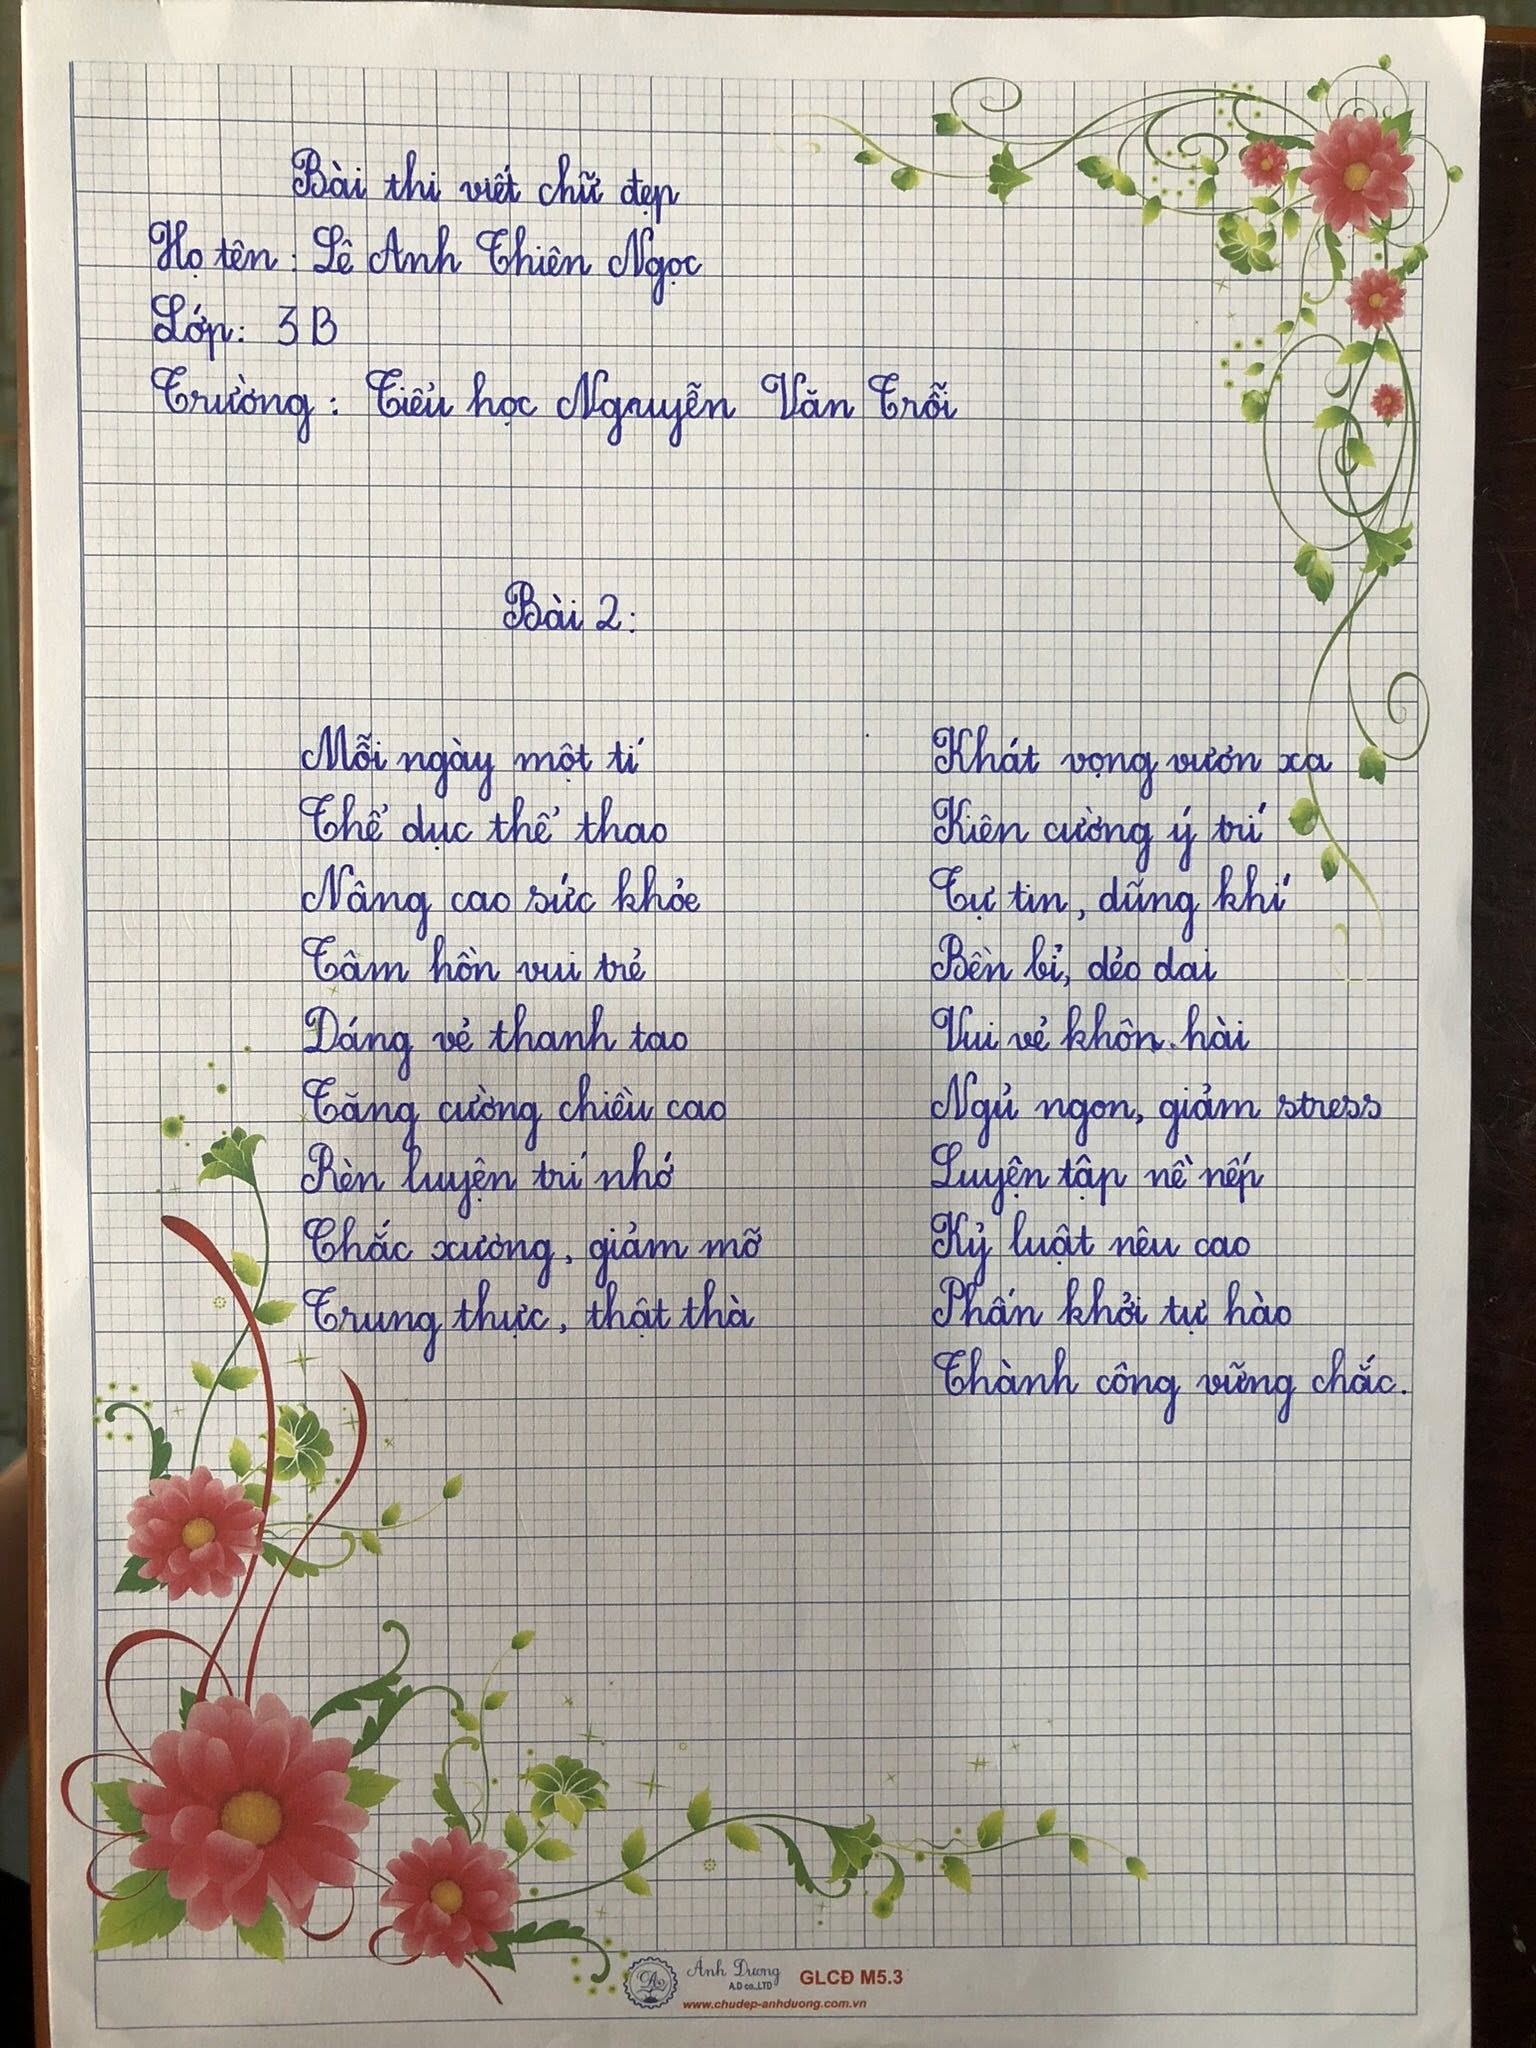 Bài thi viết chữ đẹp
Họ tên: Lê Anh Thiên Ngọc
Lớp: 3B
Trường: Tiểu học Nguyễn Văn Trỗi
Bài 2:
Mỗi ngày một tí
Thể dục thể thao
Nâng cao sức khỏe
Tâm hồn vui trẻ
Dáng vẻ thanh tao
Tăng cường chiều cao
Rèn luyện trí nhớ
Chắc xương, giảm mỡ
Trung thực, thật thà
Khát vọng vươn xa
Kiên cường ý trí
Tự tin, dũng khí
Bền bỉ, dẻo dai
Vui vẻ khôn hài
Ngủ ngon, giảm stress
Luyện tập nề nếp
Kỷ luật nêu cao
Phấn khởi tự hào
Thành công vững chắc.
Ánh Dương
A.D co.,LTD
GLCĐ M5.3
www.chudep-anhduong.com.vn